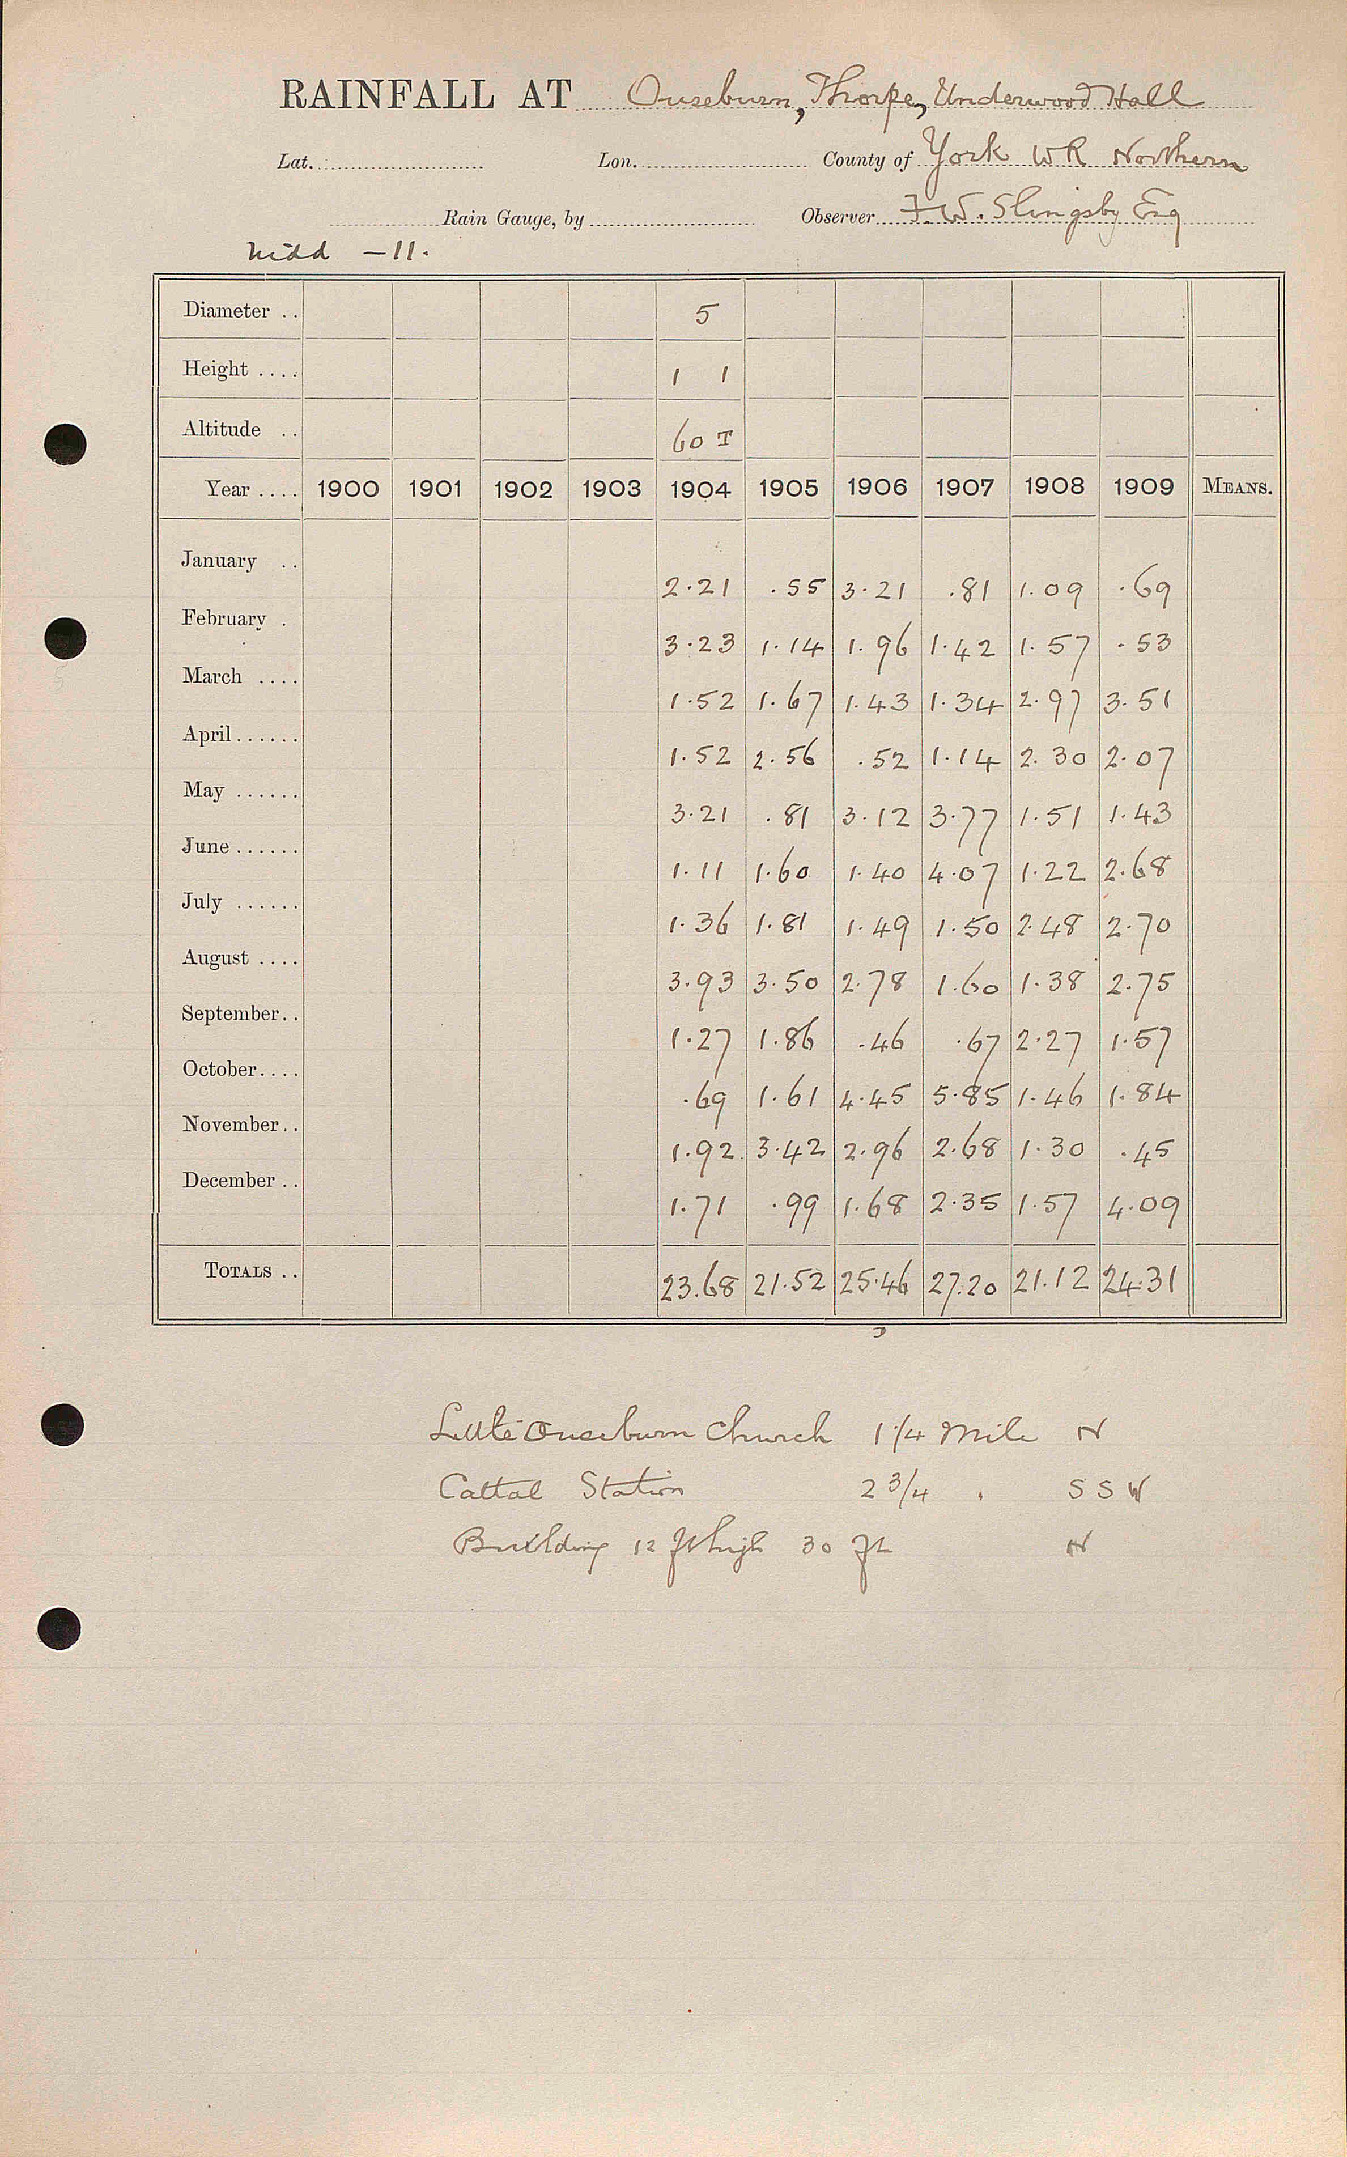 RAINFALL AT Ouseburn, Thorpe, Underwood Hall
Lat. Lon. County of York WR Northern
Rain Gauge, by Observer F. W. Slingsby Esq
Nidd -11.
Diameter .. 5
Height .... 1 1
Altitude .. 60 T
Year .... 1900 1901 1902 1903 1904 1905 1906 1907 1908 1909 MEANS.
January .. 2.21 .55 3.21 .81 1.09 .69
February . 3.23 1.14 1.96 1.42 1.57 .53
March .... 1.52 1.67 1.43 1.34 2.97 3.51
April...... 1.52 2.56 .52 1.14 2.30 2.07
May ...... 3.21 .81 3.12 3.77 1.51 1.43
June ...... 1.11 1.60 1.40 4.07 1.22 2.68
July ...... 1.36 1.81 1.49 1.50 2.48 2.70
August .... 3.93 3.50 2.78 1.60 1.38 2.75
September.. 1.27 1.86 .46 .67 2.27 1.57
October.... .69 1.61 4.45 5.85 1.46 1.84
November.. 1.92 3.42 2.96 2.68 1.30 .45
December .. 1.71 .99 1.68 2.35 1.57 4.09
TOTALS .. 23.68 21.52 25.46 27.20 21.12 24.31
Little Ouseburn Church 1 1/4 Mile N
Cattal Station 2 3/4 " SSW
Building 12 ft high 30 ft N